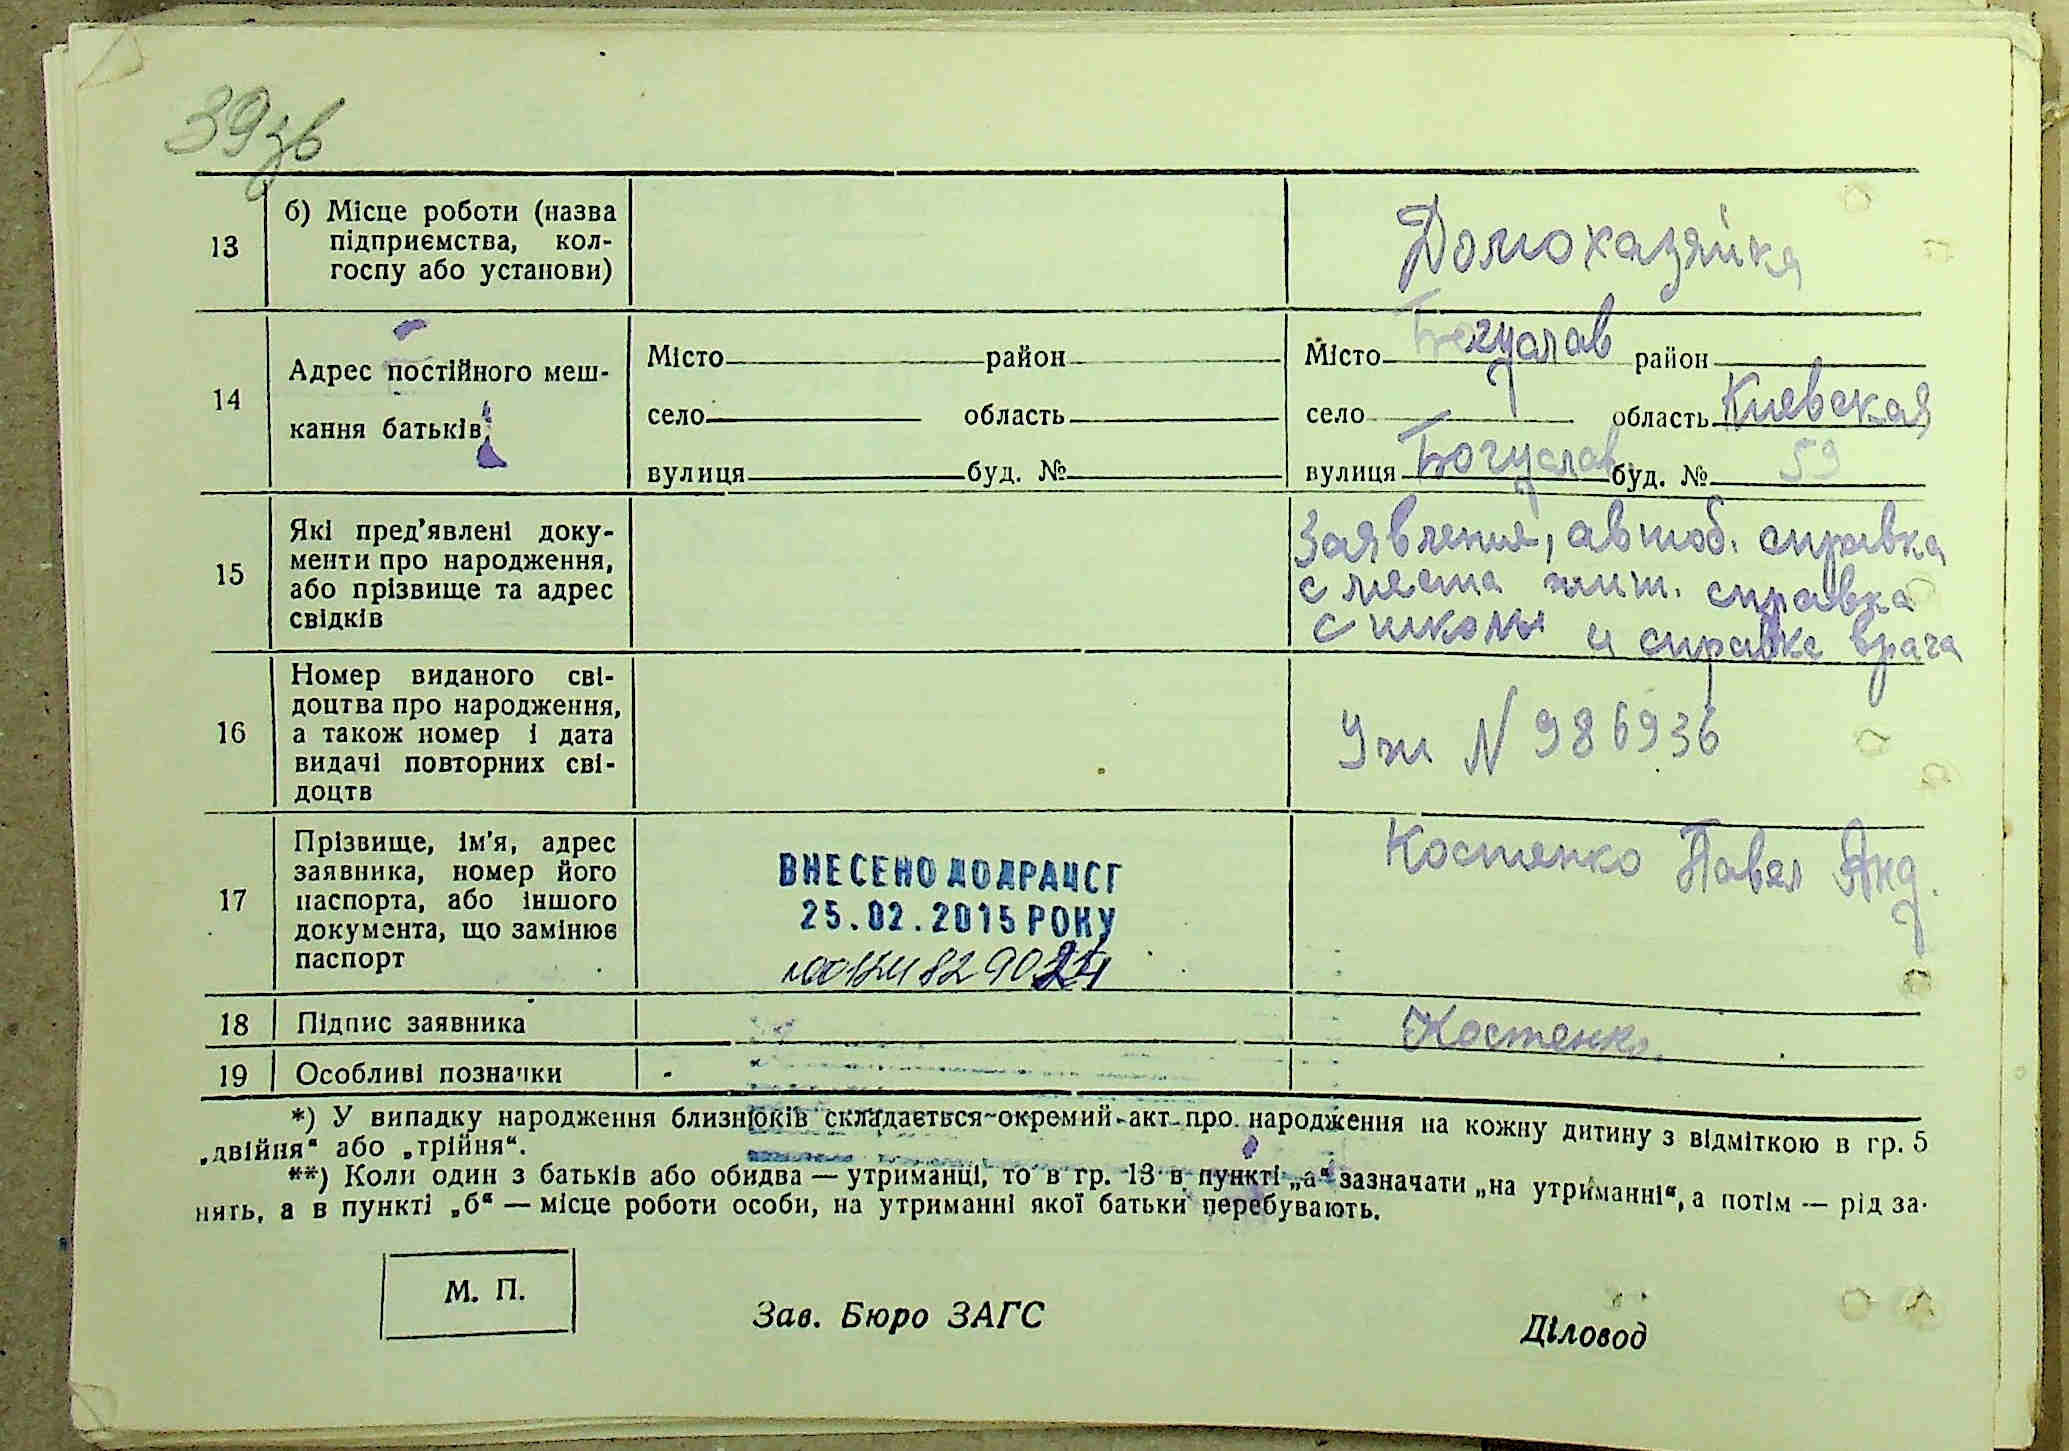 39зв
13
б) Місце роботи (назва
підприємства, кол-
госпу або установи)
Домохазяйка
14
Адрес постійного меш-
кання батьків
Місто район
село область
вулиця буд. №
Місто Богуслав район
село область Киевская
вулиця Богуслав буд. № 59
15
Які пред'явлені доку-
менти про народження,
або прізвище та адрес
свідків
Заявления, автоб. справка
с места жит. справка
с школы и справка врача
16
Номер виданого сві-
доцтва про народження,
а також номер і дата
видачі повторних сві-
доцтв
N 986936
17
Прізвище, ім'я, адрес
заявника, номер його
паспорта, або іншого
документа, що замінює
паспорт
ВНЕСЕНО ДО ДРАЦСГ
25.02.2015 РОКУ
Костенко Павел Анд.
18 Підпис заявника
Костенко
19 Особливі позначки
*) У випадку народження близнюків складається окремий акт про народження на кожну дитину з відміткою в гр. 5
„двійня“ або „трійня“.
**) Коли один з батьків або обидва — утриманці, то в гр. 13 в пункті „а“ зазначати „на утриманні“, а потім — рід за-
нять, а в пункті „б“ — місце роботи особи, на утриманні якої батьки перебувають.
М. П.
Зав. Бюро ЗАГС
Діловод